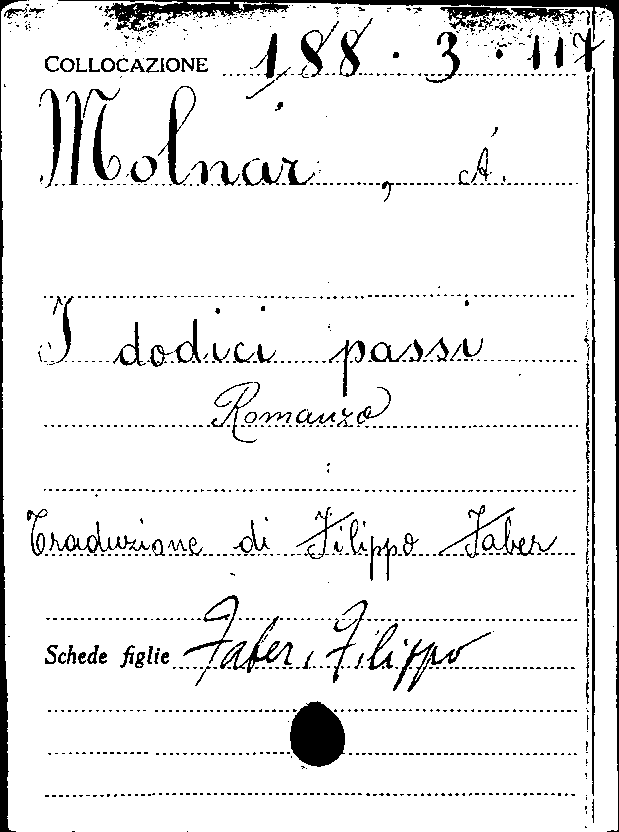 COLLOCAZIONE 188 . 3 . 117
Molnár, Á.
I dodici passi
Romanzo
Traduzione di Filippo Faber
Schede figlie Faber, Filippo